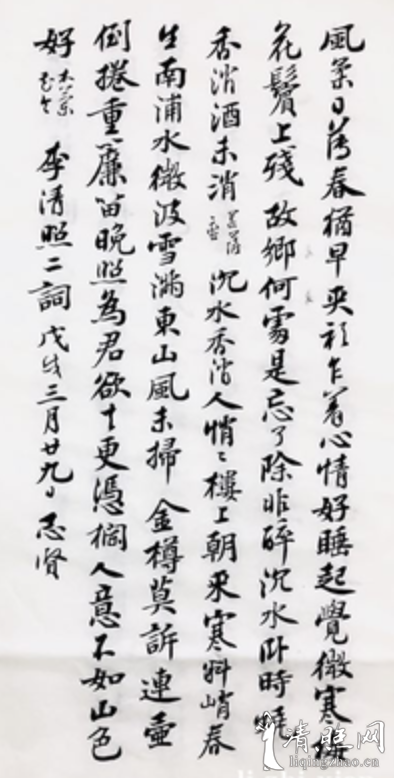 風柔日薄春猶早夾衫乍著心情好睡起覺微寒梅
花鬢上殘故鄉何處是忘了除非醉沉水臥時燒
香消酒未消菩薩蠻沉水香消人悄〻樓上朝來寒料峭春
生南浦水微波雪滿東山風未掃金樽莫訴連壺
倒捲重簾留晚照為君欲去更憑欄人意不如山色
好木蘭花令李清照二詞戊戌三月廿九日志贤
liqingzhao.cn